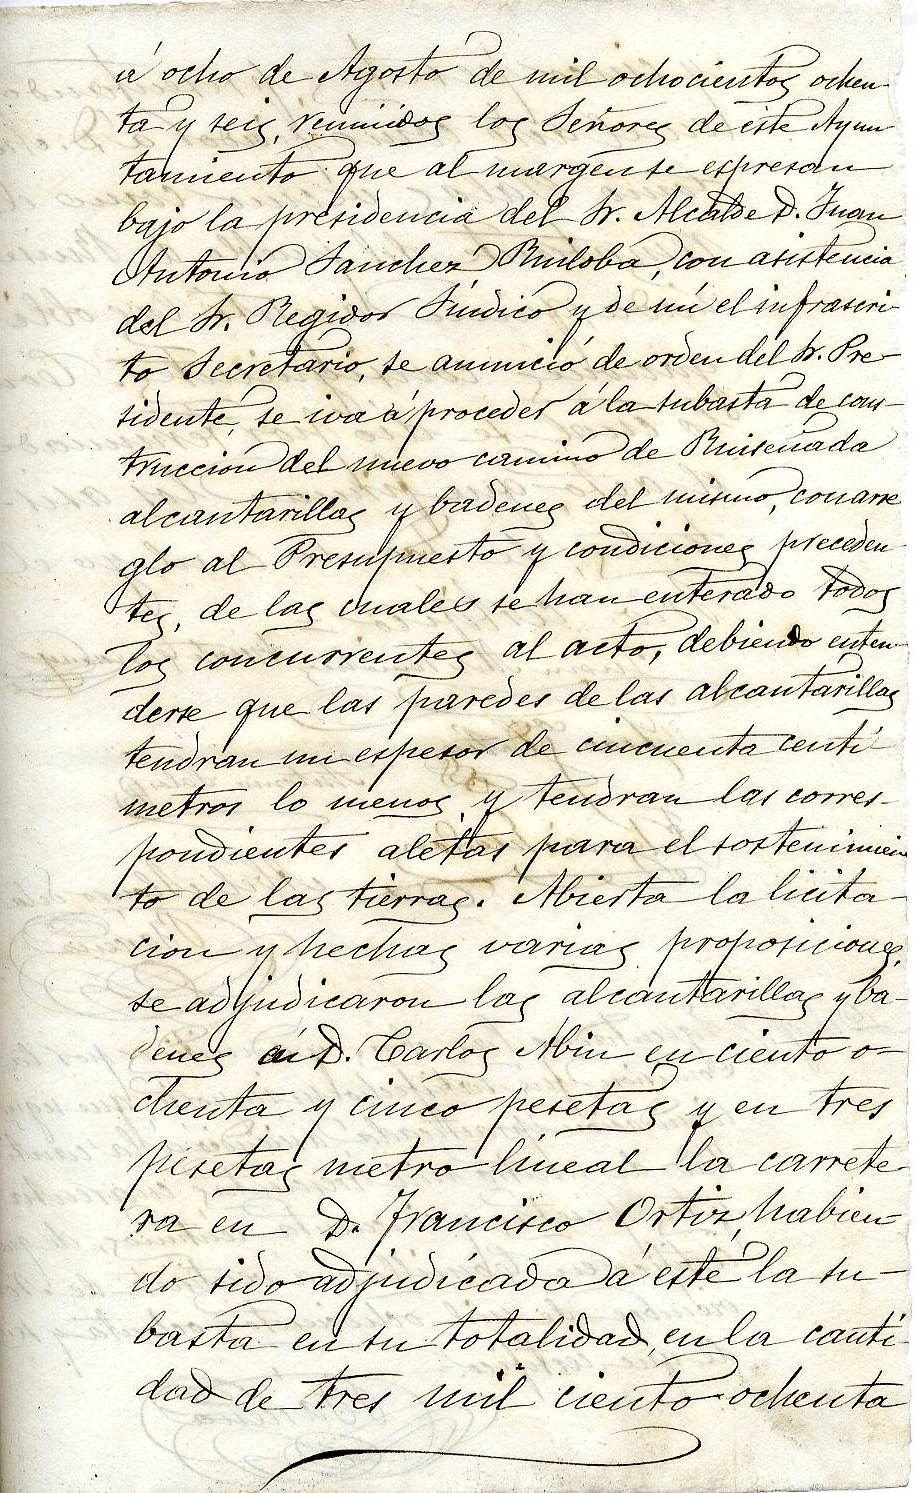 á ocho de Agosto de mil ochocientos ochen-
ta y seis, reunidos los Señores de este Ayun-
tamiento que al margen se espresan
bajo la presidencia del Sr. Alcalde D. Juan
Antonio Sanchez Ruiloba, con asistencia
del Sr. Regidor Síndico y de mi el infrascri-
to Secretario, se anunció de orden del Sr. Pre-
sidente, se iva á proceder á la subasta de cons-
truccion del nuevo camino de Ruiseñada
alcantarillas y badenes del mismo, con arre
glo al Presupuesto y condiciones preceden-
tes, de las cuales se han enterado todos
los concurrentes al acto, debiendo enten-
derse que las paredes de las alcantarillas
tendran un espesor de cincuenta centí-
metros lo menos y tendran las corres-
pondientes aletas para el sostenimien-
to de las tierras. Abierta la licita-
cion y hechas varias proposiciones,
se adjudicaron las alcantarillas y ba-
denes á D. Carlos Abin en ciento o-
chenta y cinco pesetas y en tres
pesetas metro lineal la carrete-
ra en D. Francisco Ortiz, habien-
do sido adjudicada á este la su-
basta en su totalidad, en la canti-
dad de tres mil ciento ochenta